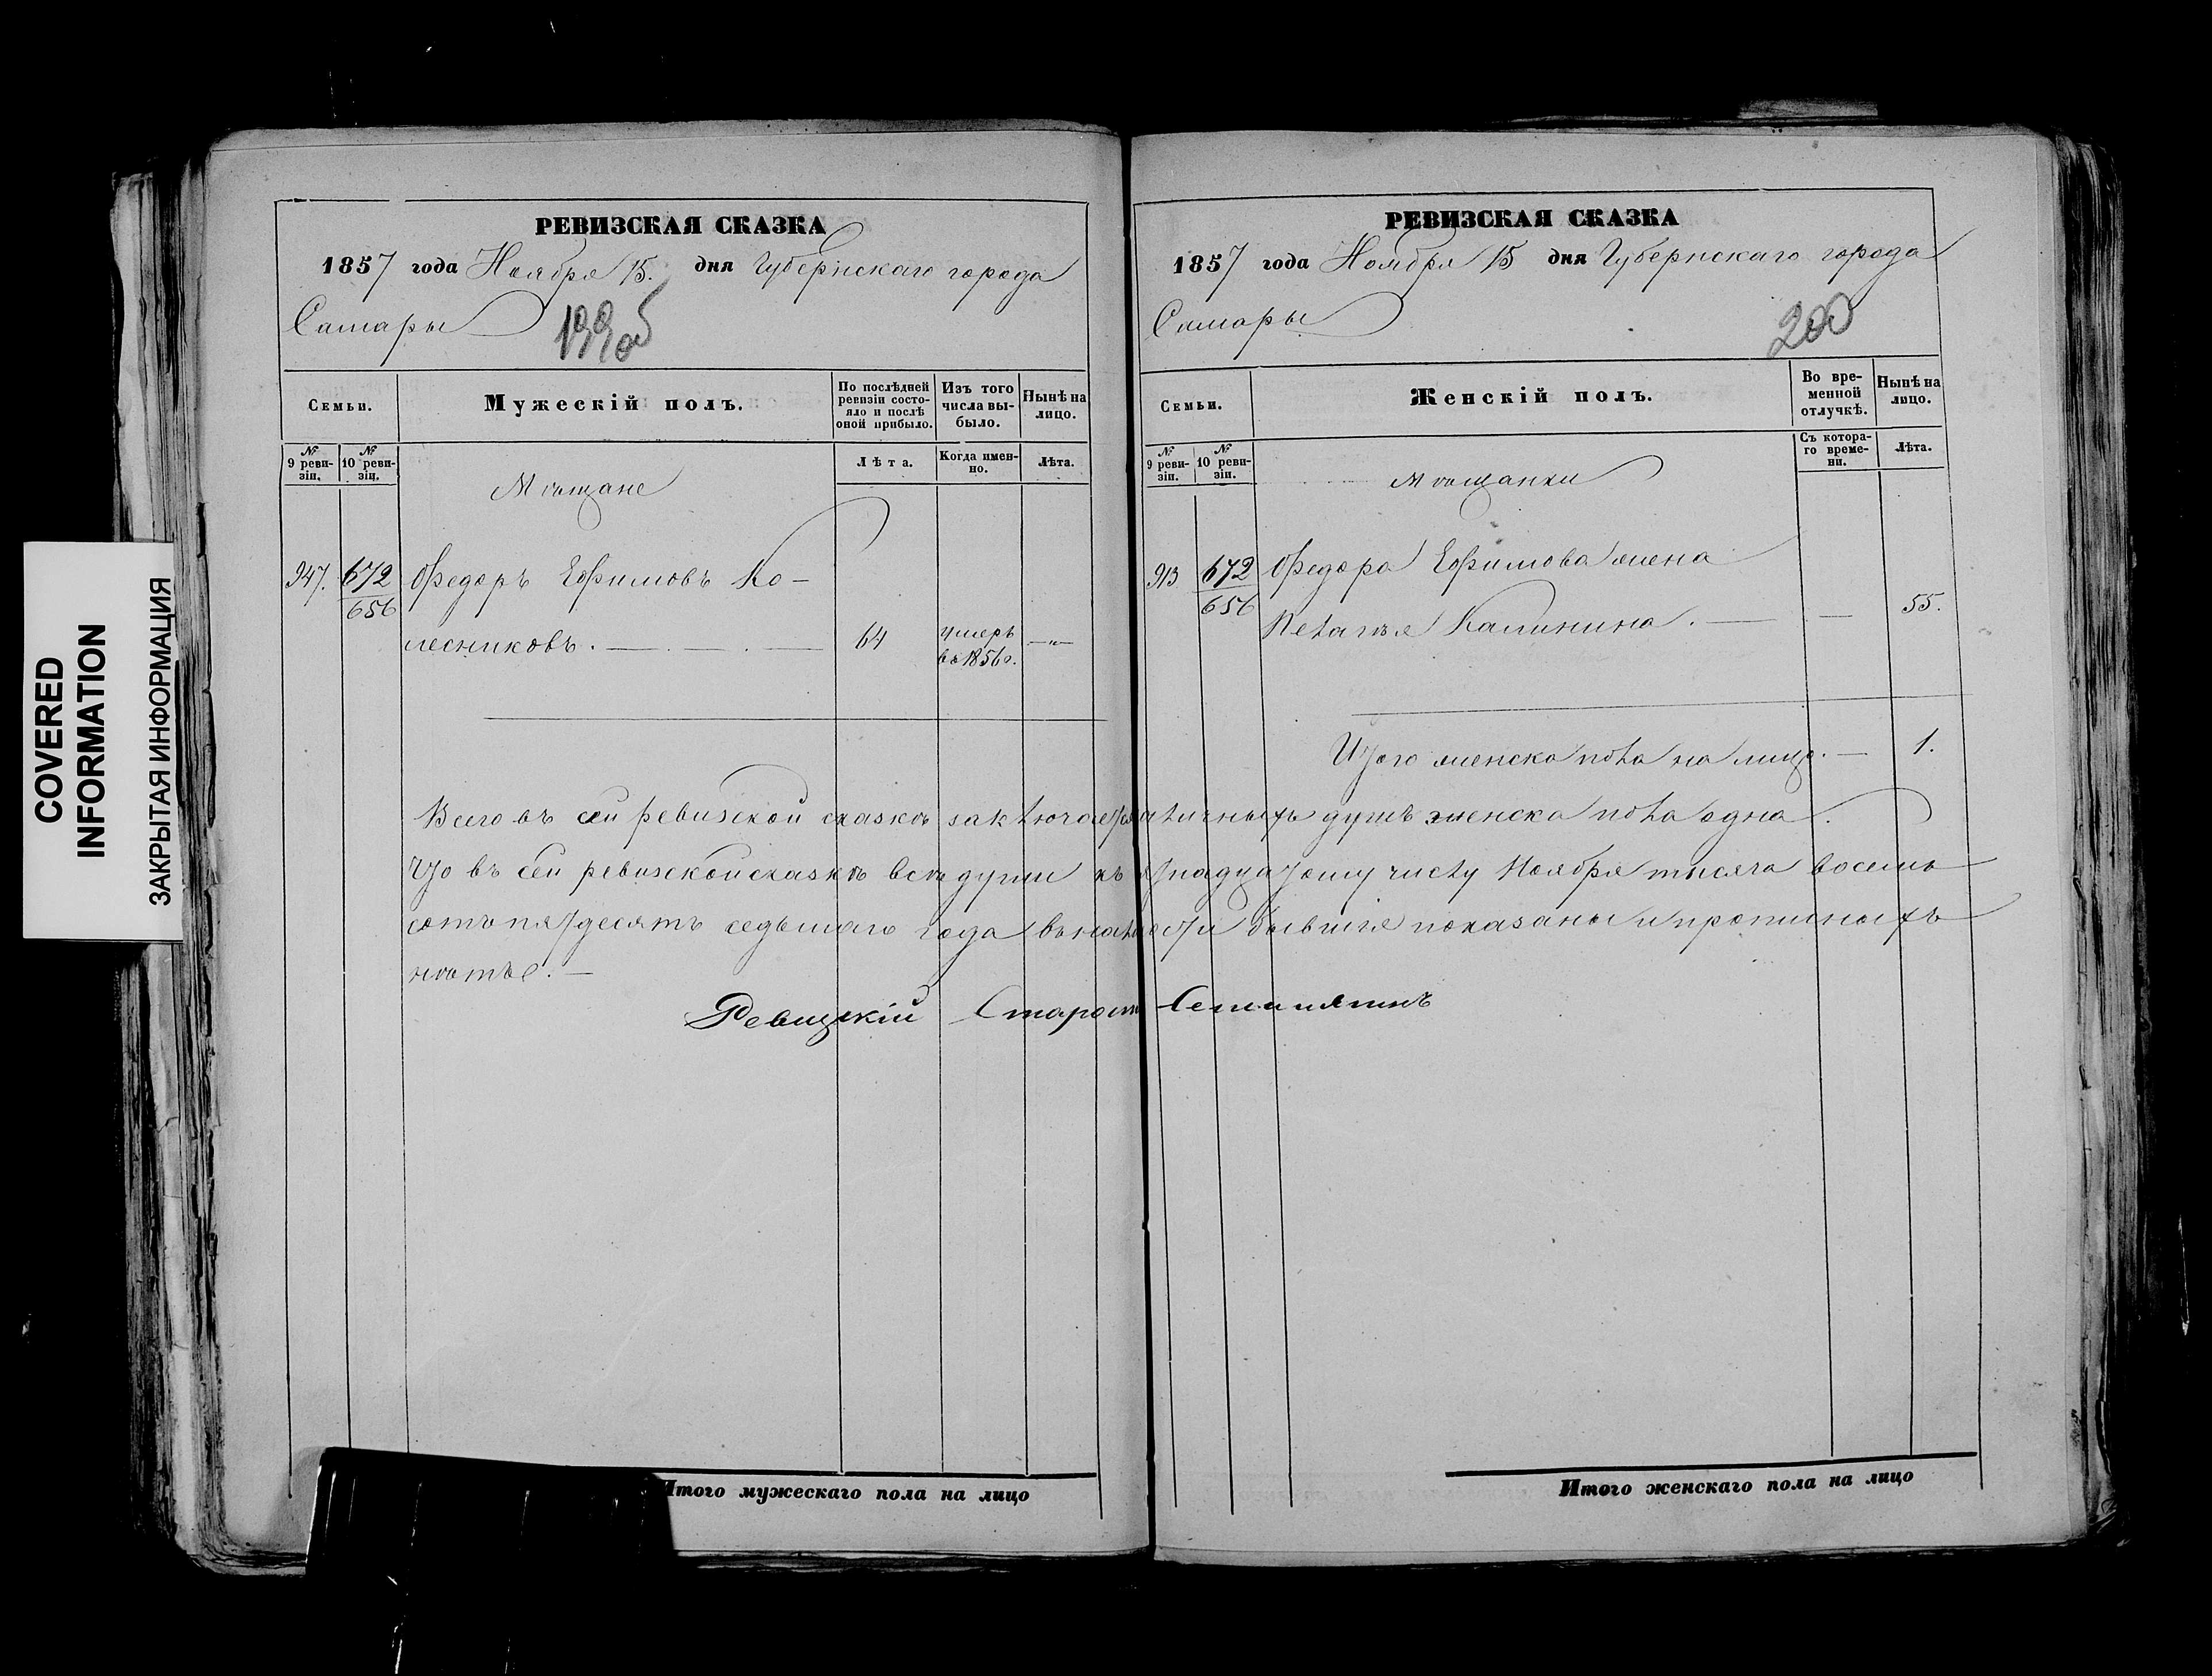 COVERED
INFORMATION
ЗАКРЫТАЯ ИНФОРМАЦИЯ
РЕВИЗСКАЯ СКАЗКА
1857 года Ноября 15. дня Губернскаго города
Самары
199об
Семьи.
Мужескій полъ.
По послѣдней
ревизіи состо-
яло и послѣ
оной прибыло.
Изъ того
числа вы-
было.
Нынѣ на
лицо.
№
9 реви-
зіи.
№
10 реви-
зіи.
Лѣта.
Когда имен-
но.
Лѣта.
Мѣщане
947. 672 Федоръ Ефимовъ Ко-
656
лесниковъ. 64 умеръ
въ 1856 г.
РЕВИЗСКАЯ СКАЗКА
1857 года Ноября 15 дня Губернскаго города
Самары
200
Семьи.
Женскій полъ.
Во вре-
менной
отлучкѣ.
Нынѣ на
лицо.
№
9 реви-
зіи.
№
10 реви-
зіи.
Съ котора-
го време-
ни.
Лѣта.
Мѣщанки
913 672 Федора Ефимова жена
656
Пелагѣя Калинина. 55.
Итого женска пола на лицо. 1.
Всего въ сей ревизской сказкѣ заключается наличныхъ душъ женска пола одна.
Что въ сей ревизской сказкѣ всѣ души къ пятнадцатому числу Ноября тысяча восемь
сотъ пятьдесятъ седьмаго года въ наличности бывшія показаны и прописныхъ
нѣтъ.
Староста
Итого мужескаго пола на лицо
Итого женскаго пола на лицо